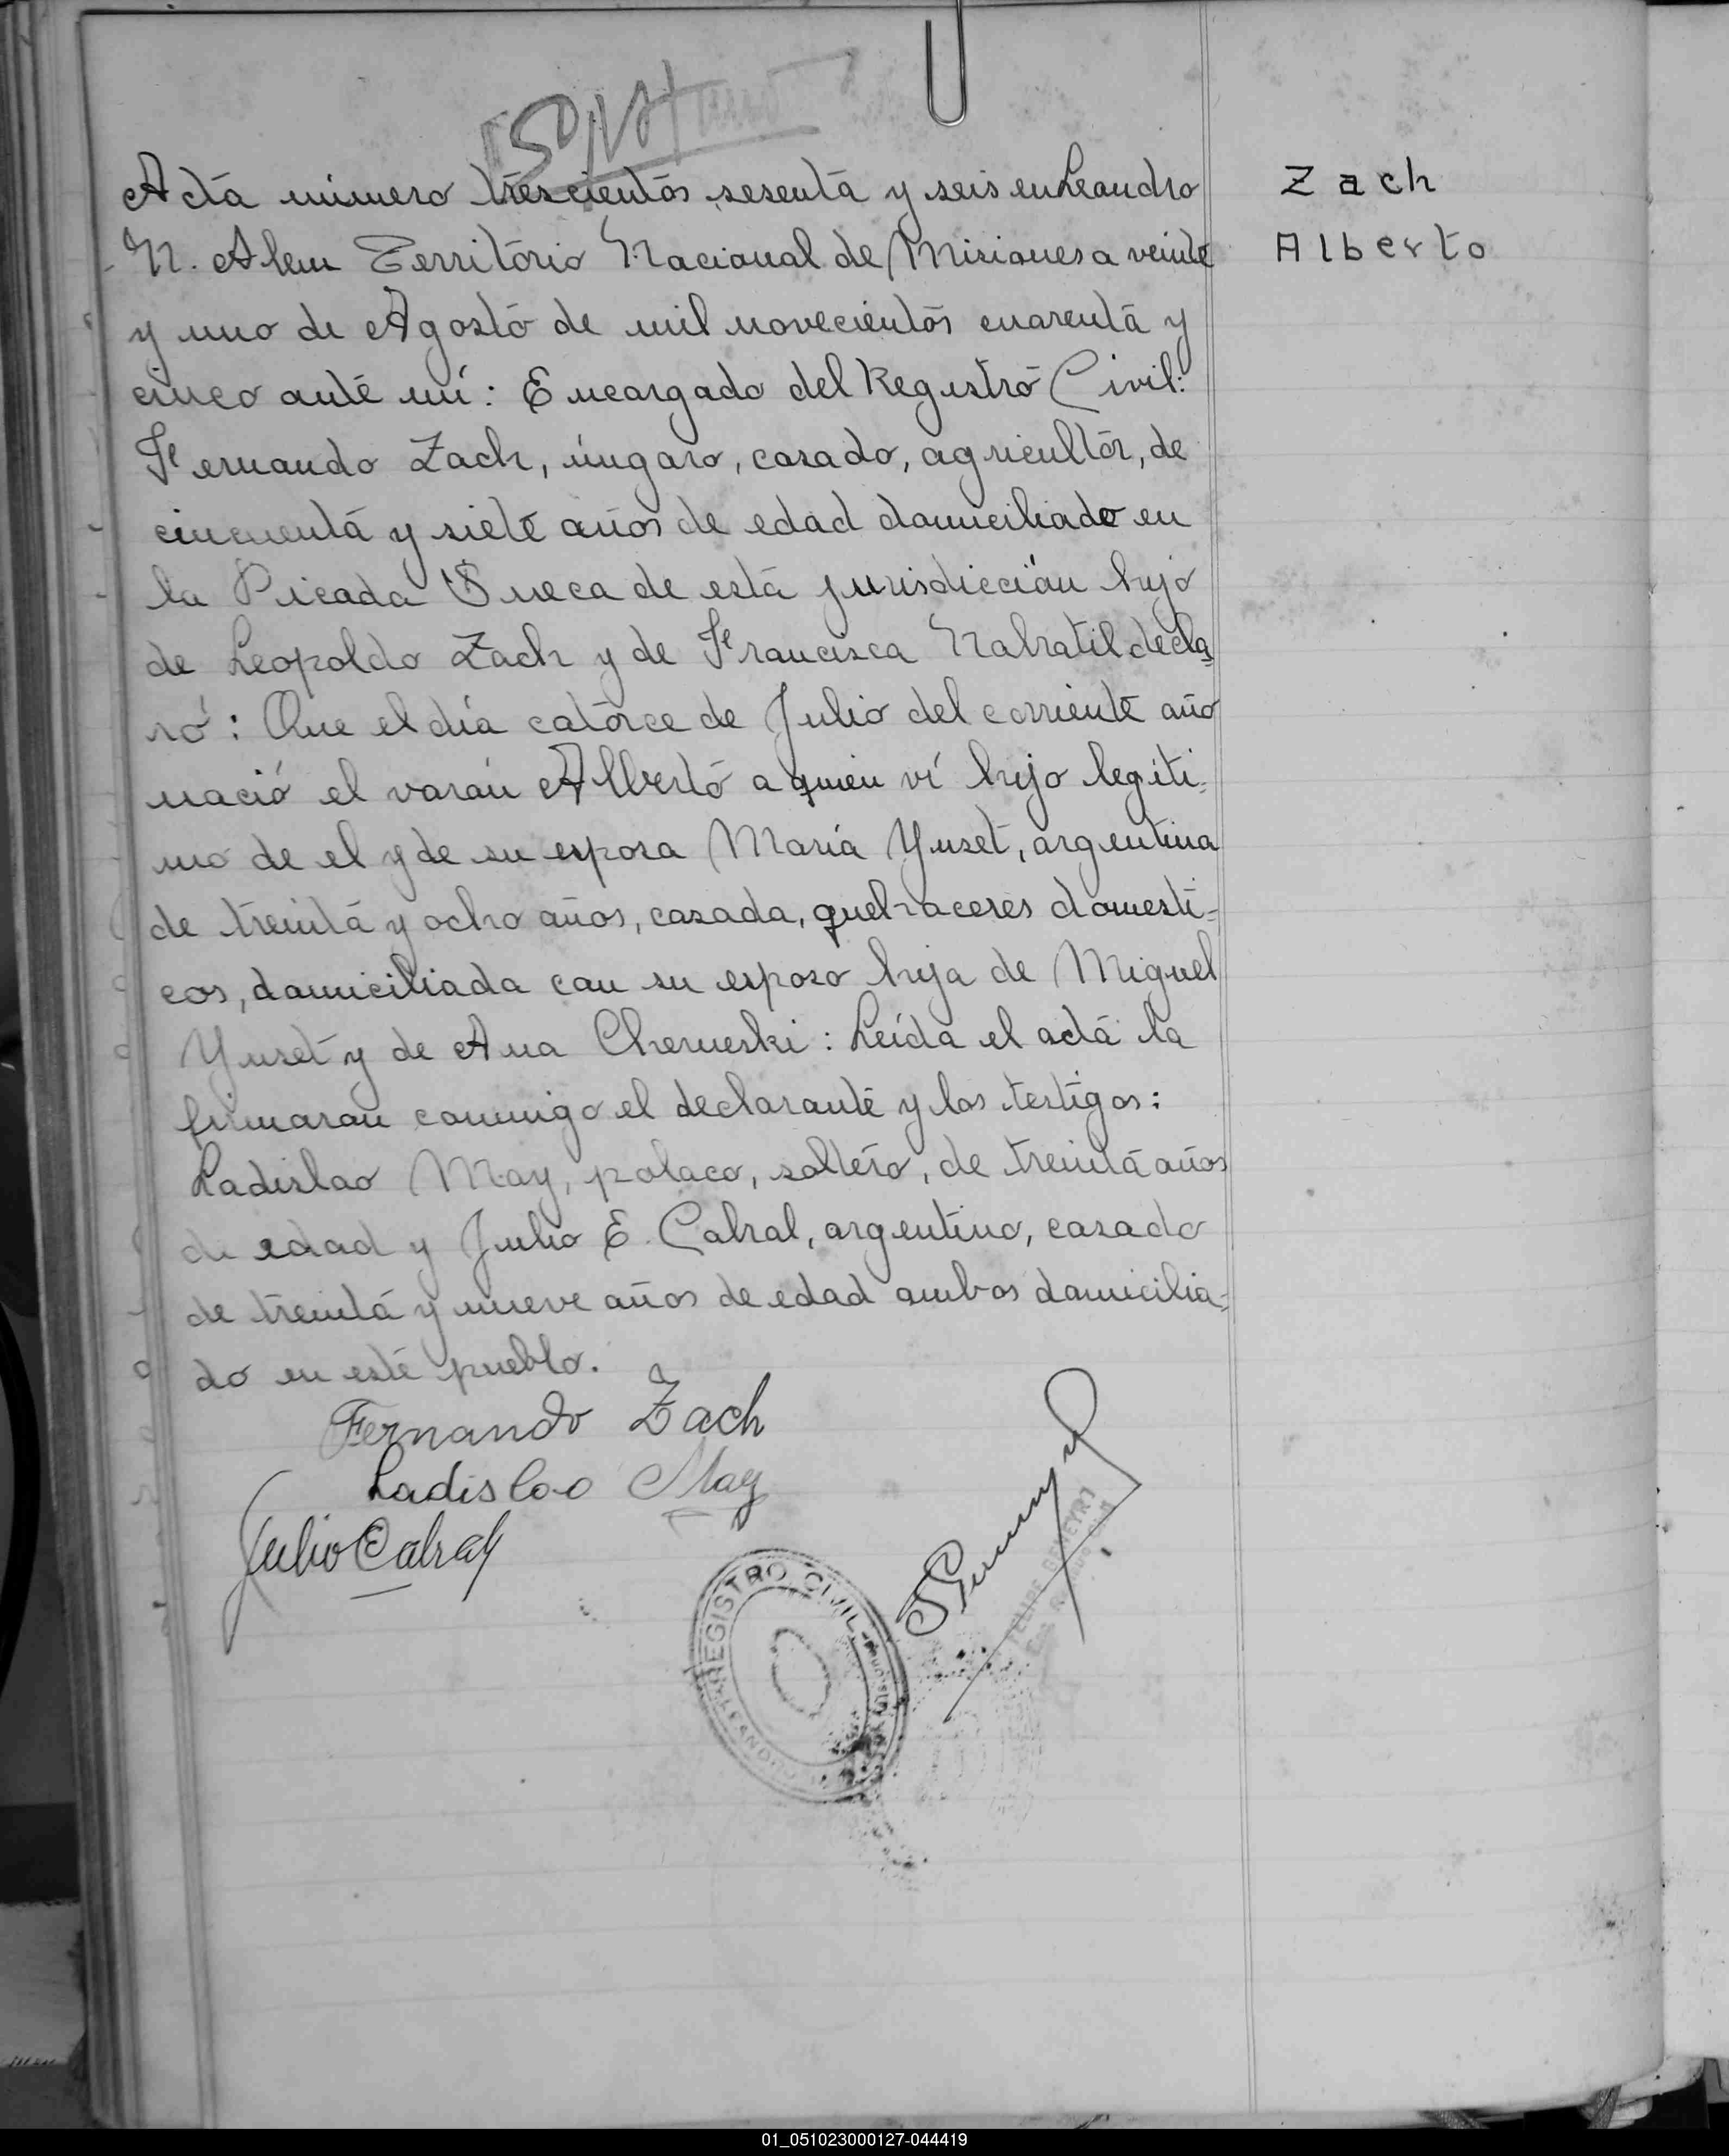 Acta número trescientos sesenta y seis en Leandro
N. Alem Territorio Nacional de Misiones a veinte
y uno de Agosto de mil novecientos cuarenta y
cinco ante mí: Encargado del Registro Civil:
Fernando Zach, úngaro, casado, agricultor, de
cincuenta y siete años de edad domiciliado en
la Picada Sueca de esta jurisdicción hijo
de Leopoldo Zach y de Francisca Nabratil decla
ró: Que el día catorce de Julio del corriente año
nació el varón Alberto a quien ví hijo legíti=
mo de el y de su esposa María Yuset, argentina
de treinta y ocho años, casada, quehaceres domesti=
cos, domiciliada con su esposo hija de Miguel
Yuset y de Ana Chemeski: Leída el acta la
firmaran conmigo el declarante y los testigos:
Ladislao May, polaco, soltero, de treinta años
de edad y Julio E. Cabral, argentino, casado
de treinta y nueve años de edad ambos domicilia=
do en este pueblo.
Fernando Zach
Ladislao May
Julio E Cabral
REGISTRO CIVIL
LEANDRO
FELIPE
Zach
Alberto
01_051023000127-044419